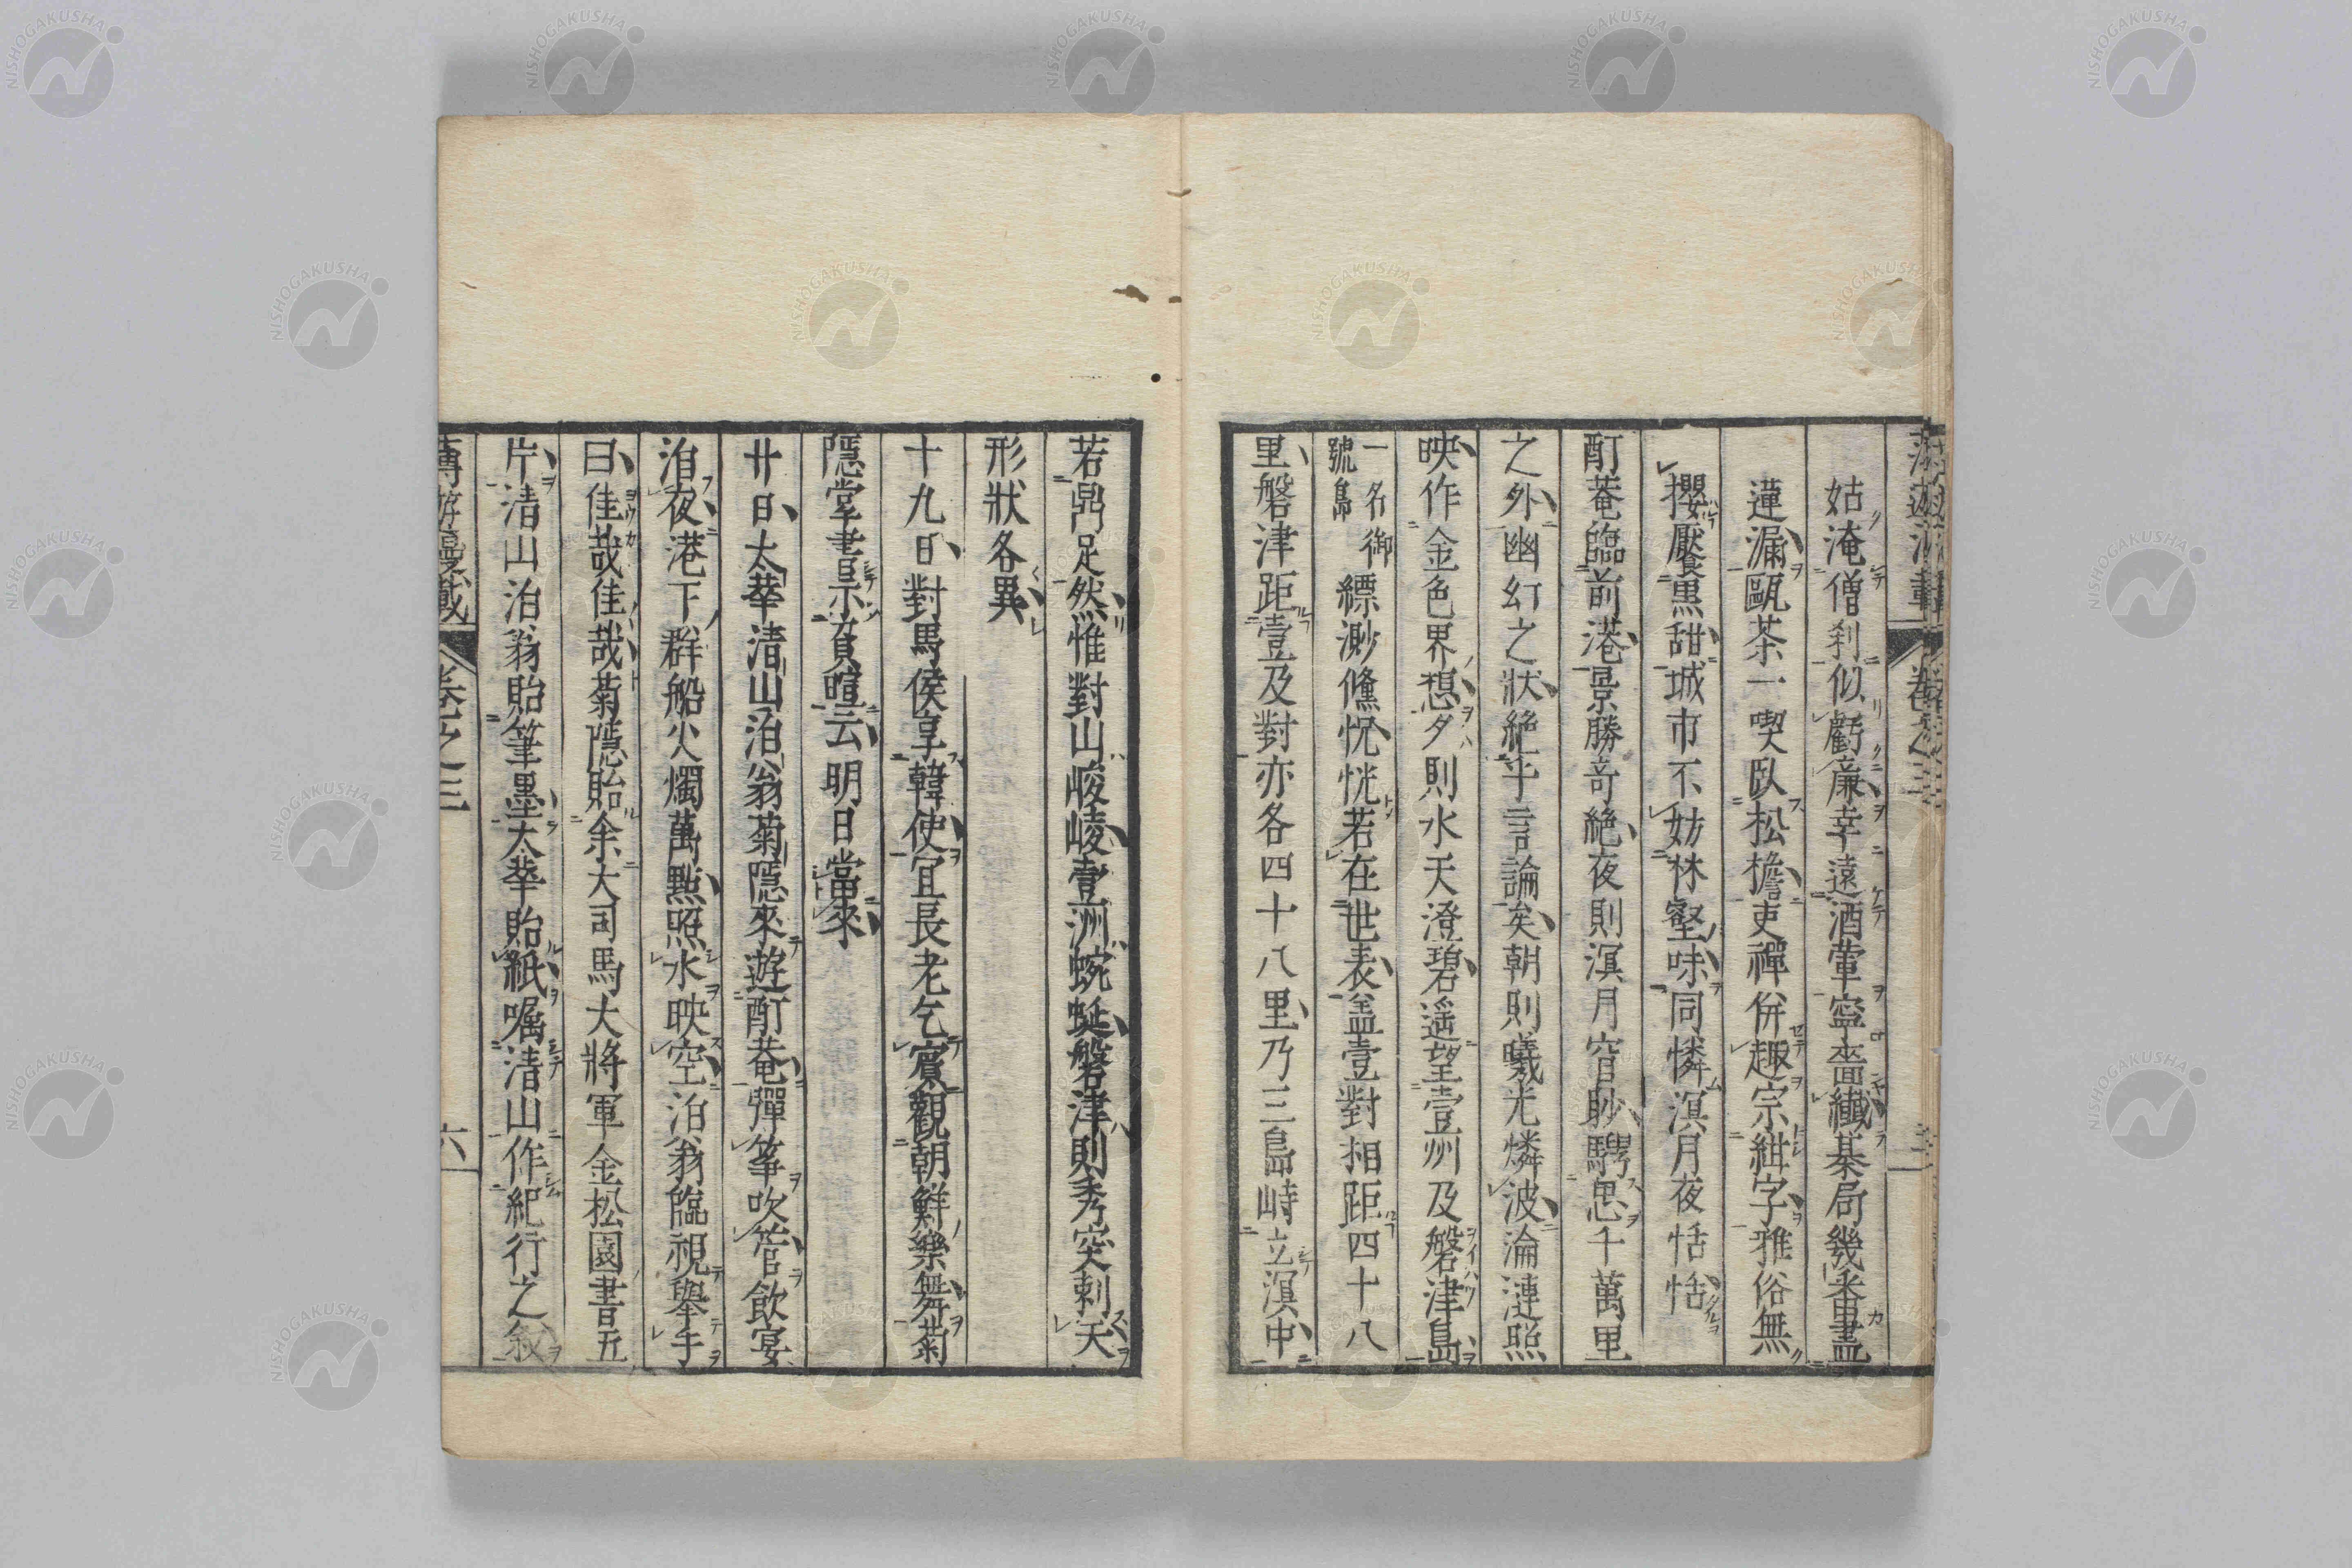 姑淹僧刹似虧廉幸遠酒葷寧嗇纖棊局幾番畫
蓮漏甌茶一喫臥松檐吏禪併趣宗紺字雅俗無
攖饜黑甜城市不妨林壑味同憐溟月夜恬恬
酊菴臨前港景勝奇絕夜則溟月窅眇騁思千萬里
之外幽幻之狀絕乎言論矣朝則曦光燐波淪漣照
映作金色界想夕則水天澄碧遥望壹州及磐津島
一名御
號島
縹渺儵怳恍若在世表盖壹對相距四十八
里磐津距壹及對亦各四十八里乃三島峙立溟中
若鼎足然惟對山巑崚壹洲蜿蜒磐津則秀突刺天
形狀各異
十九日對馬侯享韓使宜長老乞賓觀朝鮮樂舞菊
隱掌書示蕡暄云明日當來
廿日太華清山泊翁菊隱來遊酊菴彈筝吹管飲宴
洎夜港下群船火燭萬點照水映空泊翁臨視舉手
曰佳哉佳哉菊隱貽余大司馬大將軍金松園書五
片清山泊翁貽筆墨太華貽紙嘱清山作紀行之敘
卷之三
六